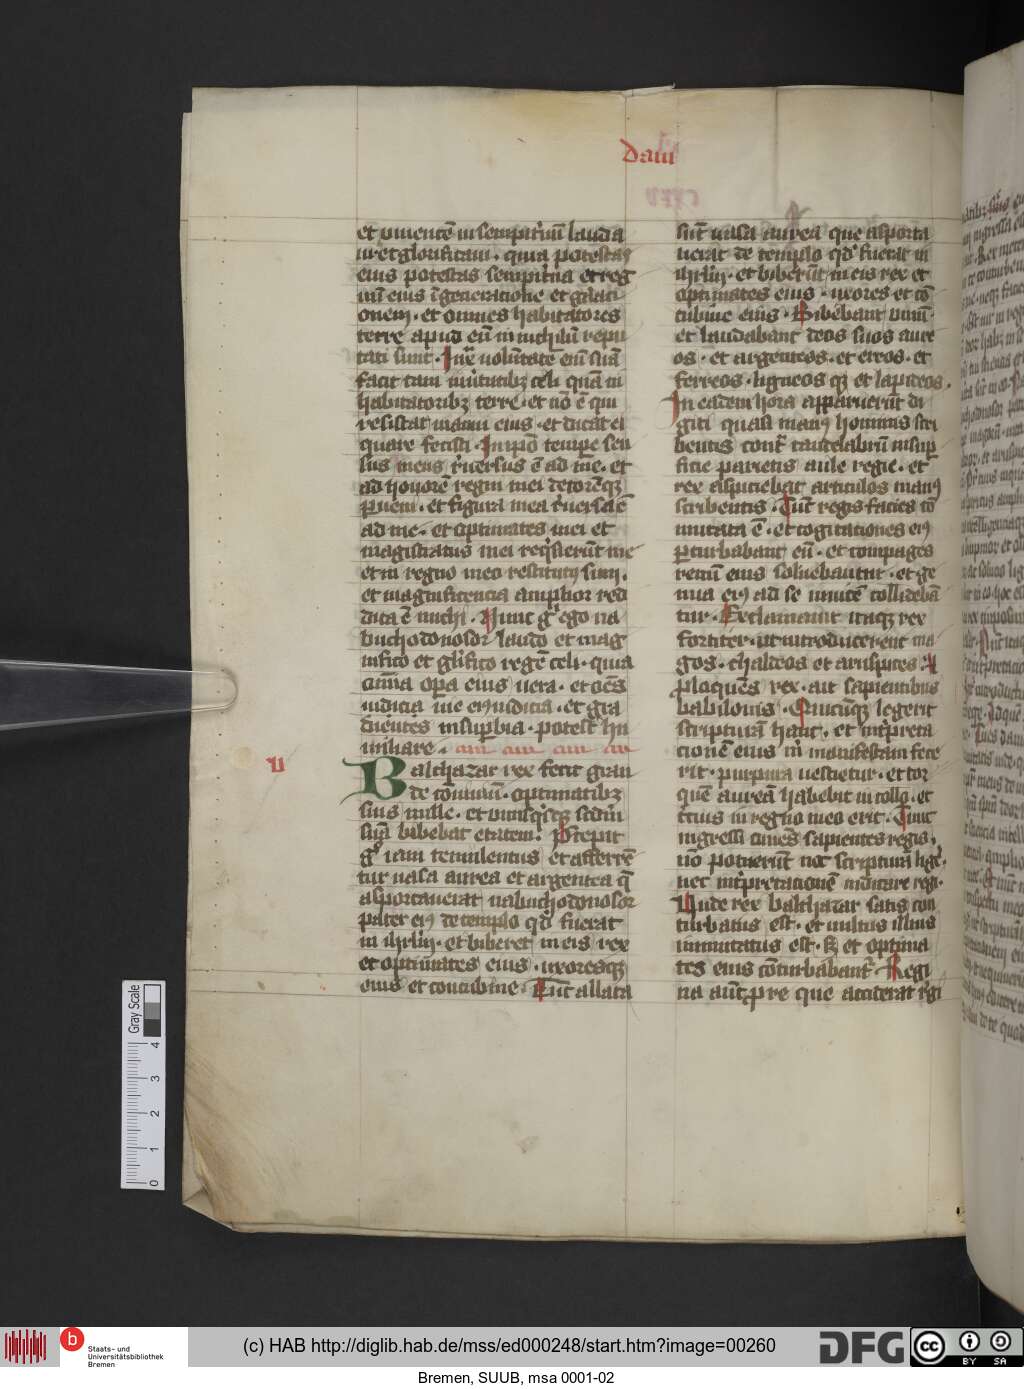 dani
et viuentē in sempit'nū lauda
ui et glorificaui · quia potestas
eius potestas sempit'na et reg
nū eius ī generatione et gn̄aci
onem · et omnes habitatores
terre apud eū in nichilū repu
tati sunt · Iux̄ volūtatē enī suā
facit tam in v'tutibꝫ celi quā in
habitatoribꝫ terre · et nō ē qui
resistat manui eius · et dicat ei
quare fecisti · In ip̄o tempe sen
sus meus r'uersus ē ad me · et
ad honorē regni mei decorēqꝫ
ꝑueni · et figura mea r'uersa ē
ad me · et optimates mei et
magistratus mei reqͥsierūt me
et in regno meo restitutꝰ sum ·
et magnificencia amplior red
dita ē michi · Nunc gͦ ego na
buchodonosor laudo et mag
nifico et gl̄ifico regē celi · quia
om̄ia opa eius uera · et oēs
uie eiꝰ iudicia · et gra
dientes in suꝑbia · potest hu
miliare ·
v
Balthazar rex fecit gran
de cōuiuiū · optimatibꝫ
suis mille · et vnusqͥsqꝫ scd̄m
suā bibebat etatem · P̄cepit
gͦ iam temulentus et afferrē
tur uasa aurea et argentea q̄
asportauerat nabuchodonosor
pater eiꝰ de templo qd̓ fuerat
in ih̄rl̄m · et biberēt in eis rex
et optimates eius · uxoresqꝫ
eius et concubine · Tūc allata
sūt uasa aurea que asporta
uerat de templo qd̓ fuerat in
ih̄rl̄m · et biberūt in eis rex et
optimates eius · uxores et cō
cubine eius · Bibebant vinū ·
et laudabant deos suos aure
os · et argenteos · et ereos · et
ferreos · ligneos qꝫ et lapideos ·
In eadem hora apparuerūt di
giti quasi manꝰ hominis scri
bentis cont̓ candelabrū in suꝑ
ficie parietis aule regie · et
rex aspiciebat articulos manꝰ
scribentis · Tūc regis facies cō
mutata ē · et cogitationes eiꝰ
ꝑturbabant eū · et compages
renū eius soluebantur · et ge
nua eiꝰ ad se inuicē collideban
tur · Exclamauit itaqꝫ rex
fortiter · ut introducerent ma
gos · chaldeos et aruspices ·
ꝓloquēs rex · ait sapientibus
babilonis · Quicūqꝫ legerit
scripturā hanc · et int'preta
cionē eius m̄ manifestam fece
rit · purpura uestietur · et tor
quē aureā habebit in collo · et
tercius in regno meo erit · Tunc
ingressi omēs sapientes regis ·
nō potuerūt nec scripturā lige'
nec int'pretacionē indicare regi ·
Unde rex balthazar satis con
turbatus est · et uultus illius
inmutatus est · S et optima
tes eius cōturbabant̓ · Regi
na aūt ꝓ re que acciderat r̄gi
Gray Scale
0 1 2 3 4
Staats- und
Universitätsbibliothek
Bremen
(c) HAB http://diglib.hab.de/mss/ed000248/start.htm?image=00260
DFG
cc BY SA
Bremen, SUUB, msa 0001-02